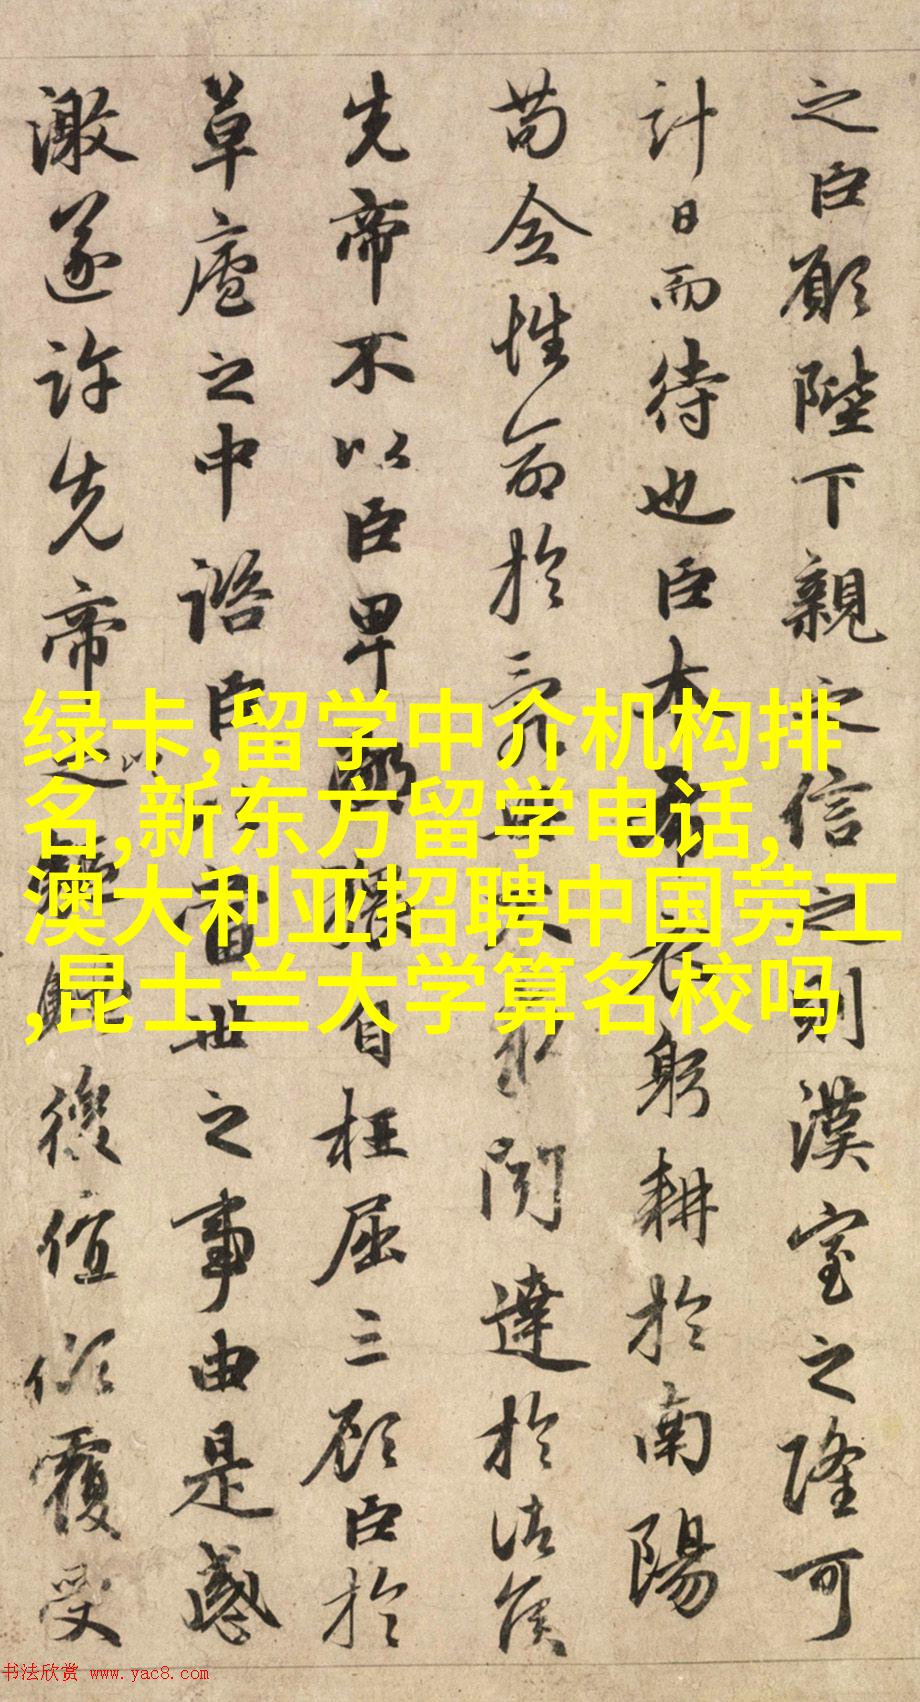 之臣願陛下親之信之則漢室之隆可
計日而待也臣本布衣躬耕於南陽
苟全性命於亂世不求聞達於諸侯
先帝不以臣卑鄙猥自枉屈三顧臣於
草廬之中諮臣以當世之事由是感
激遂許先帝以驅馳後值傾覆受
绿卡,留学中介机构排
名,新东方留学电话,
澳大利亚招聘中国劳工
,昆士兰大学算名校吗
书法欣赏 www.yac8.com